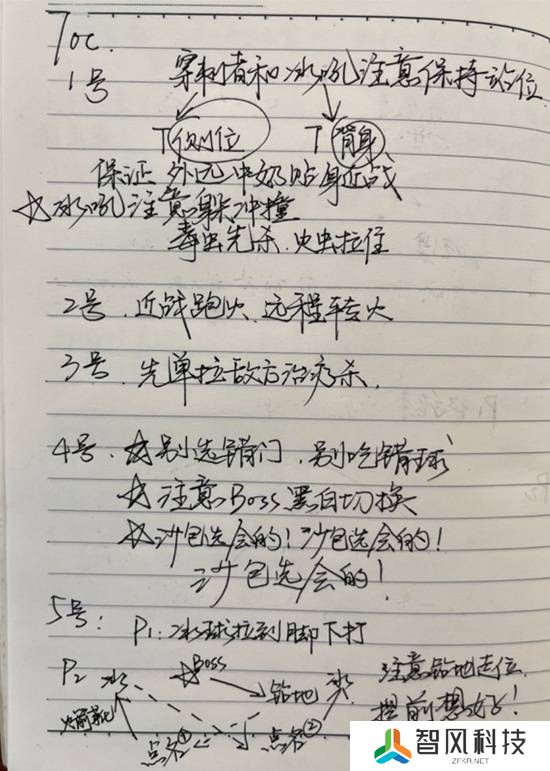 Toc.
1号 穿刺者和冰吼注意保持站位
T侧位 T背身
保证 外远中奶贴身近战
☆冰吼注意躲冲撞
毒虫先杀.火虫拉住
2号.近战跑火、远程转火
3号.先单拉敌方治疗杀.
4号.☆别选错门.别吃错球
☆注意Boss黑白切换
☆沙包选会的!沙包选会的!
沙包选会的!
5号: P1:冰球拉到脚下打
P2 冰 ☆Boss 钻地 冰 注意钻地走位
火箭靴 点名① 点名② 提前想好!
智风科技
ZFKR.NET